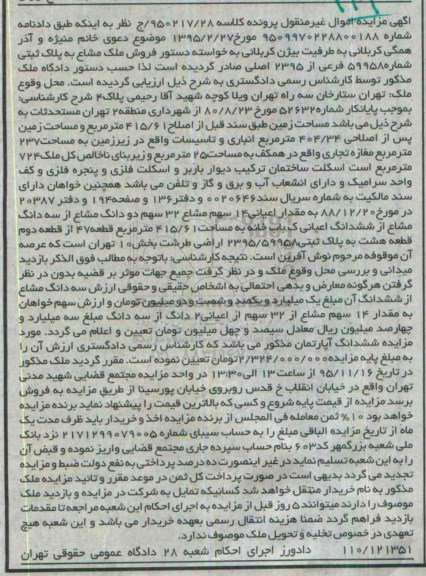 آگهی مزایده اموال غیرمنقول پرونده کلاسه ۹۵۰۲۱۷/۲۸/ج نظر به اینکه طبق دادنامه
شماره ۹۵۰۹۹۷۰۲۲۸۸۰۰۱۸۸ مورخ۱۳۹۵/۲/۲۷ موضوع دعوی خانم منیژه و آذر
همگی کربلائی به طرفیت بیژن کربلائی به خواسته دستور فروش ملک مشاع به پلاک ثبتی
شماره۵۹۹۵۸ فرعی از ۲۳۹۵ اصلی صادر گردیده است لذا حسب دستور دادگاه ملک
مذکور توسط کارشناس رسمی دادگستری به شرح ذیل ارزیابی گردیده است. محل وقوع
ملک: تهران ستارخان سه راه تهران ویلا کوچه شهید آقا رحیمی پلاک۴ شرح کارشناسی:
بموجب پایانکار شماره۵۲۶۳۲ مورخ ۸۰/۸/۲۳ از شهرداری منطقه۲ تهران مستحدثات به
شرح ذیل می باشد مساحت زمین طبق سند قبل از اصلاح۴۱۵/۶۱ مترمربع و مساحت زمین
پس از اصلاحی ۴۰۴/۳۴ مترمربع انباری و تاسیسات واقع در زیرزمین به مساحت۲۳۷
مترمربع مغازه تجاری واقع در همکف به مساحت۲۵ مترمربع و زیربنای ناخالص کل ملک۷۲۴
مترمربع است اسکلت ساختمان ترکیب دیوار باربر و اسکلت فلزی و پنجره فلزی و کف
واحد سرامیک و دارای انشعاب آب و برق و گاز و تلفن می باشد همچنین خواهان دارای
سند مالکیت به شماره سریال سند۰۰۲۰۶۴۶ و دفتر۱۳۶ و صفحه۱۹۴ و دفتر ۲۰۳۸۷
در مورخ۸۸/۱۲/۲۰ به مقدار اعیانی۱۴ سهم مشاع ۳۲ سهم دو دانگ مشاع از سه دانگ
مشاع از ششدانگ اعیانی یک باب خانه به مساحت۴۱۵/۶۱ مترمربع قطعه۴۷ از قطعه دوم
قطعه هشت به پلاک ثبتی۲۳۹۵/۵۹۹۵۸ اراضی طرشت بخش۱۰ تهران است که عرصه
آن موقوفه مرحوم نوش آفرین است. نتیجه کارشناسی: باتوجه به مطالب فوق الذکر بازدید
میدانی و بررسی محل وقوع ملک و در نظر گرفت جمیع جهات موثر بر قضیه بدون در نظر
گرفتن هرگونه معارض و بدهی احتمالی به اشخاص حقیقی و حقوقی ارزش سه دانگ مشاع
از ششدانگ آن مبلغ یک میلیارد و یکصد و شصت و دو میلیون تومان و ارزش سهم خواهان
به مقدار ۱۴ سهم مشاع از ۳۲ سهم از اعیانی۲ دانگ از سه دانگ مبلغ سه میلیارد و
چهارصد میلیون ریال معادل سیصد و چهل میلیون تومان تعیین و اعلام می گردد. مورد
مزایده ششدانگ آپارتمان مذکور می باشد که کارشناس رسمی دادگستری ارزش آن را
به مبلغ پایه مزایده۲/۳۲۴/۰۰۰/۰۰۰تومان تعیین نموده است. مقرر گردید ملک مذکور
در تاریخ ۹۵/۱۱/۱۶ از ساعت۱۳ الی۱۳:۳۰ در واحد مزایده مجتمع قضایی شهید مدنی
تهران واقع در خیابان انقلاب خ قدس روبروی خیابان پورسینا از طریق مزایده به فروش
برسد مزایده از قیمت پایه شروع و کسی که بالاترین قیمت را پیشنهاد نماید برنده مزایده
خواهد بود ۱۰% ثمن معامله فی المجلس از برنده مزایده اخذ و خریدار باید ظرف مدت یک
ماه از تاریخ مزایده الباقی مبلغ را به حساب سیبای شماره ۲۱۷۱۲۹۹۰۷۹۰۰۵ نزد بانک
ملی شعبه بزرگمهر کد۶۰۳ بنام حساب سپرده جاری مجتمع قضایی واریز نموده و قبض آن
را به این شعبه تسلیم نماید در غیر اینصورت ده درصد پرداختی به نفع دولت ضبط و مزایده
تجدید می گردد بدیهی است در صورت پرداخت کل ثمن در موعد مقرر و تائید مزایده ملک
مذکور به نام خریدار منتقل خواهد شد کسانیکه تمایل به شرکت در مزایده و بازدید ملک
موصوف را دارند میتوانند ۵ روز قبل از مزایده به اجرای احکام این شعبه مراجعه تا مقدمات
بازدید فراهم گردد ضمنا هزینه انتقال رسمی بعهده خریدار می باشد و این شعبه هیچ
تعهدی در خصوص تخلیه و تحویل ملک موصوف ندارد.
۱۱۰/۱۲۱۳۵۱ دادورز اجرای احکام شعبه ۲۸ دادگاه عمومی حقوقی تهران